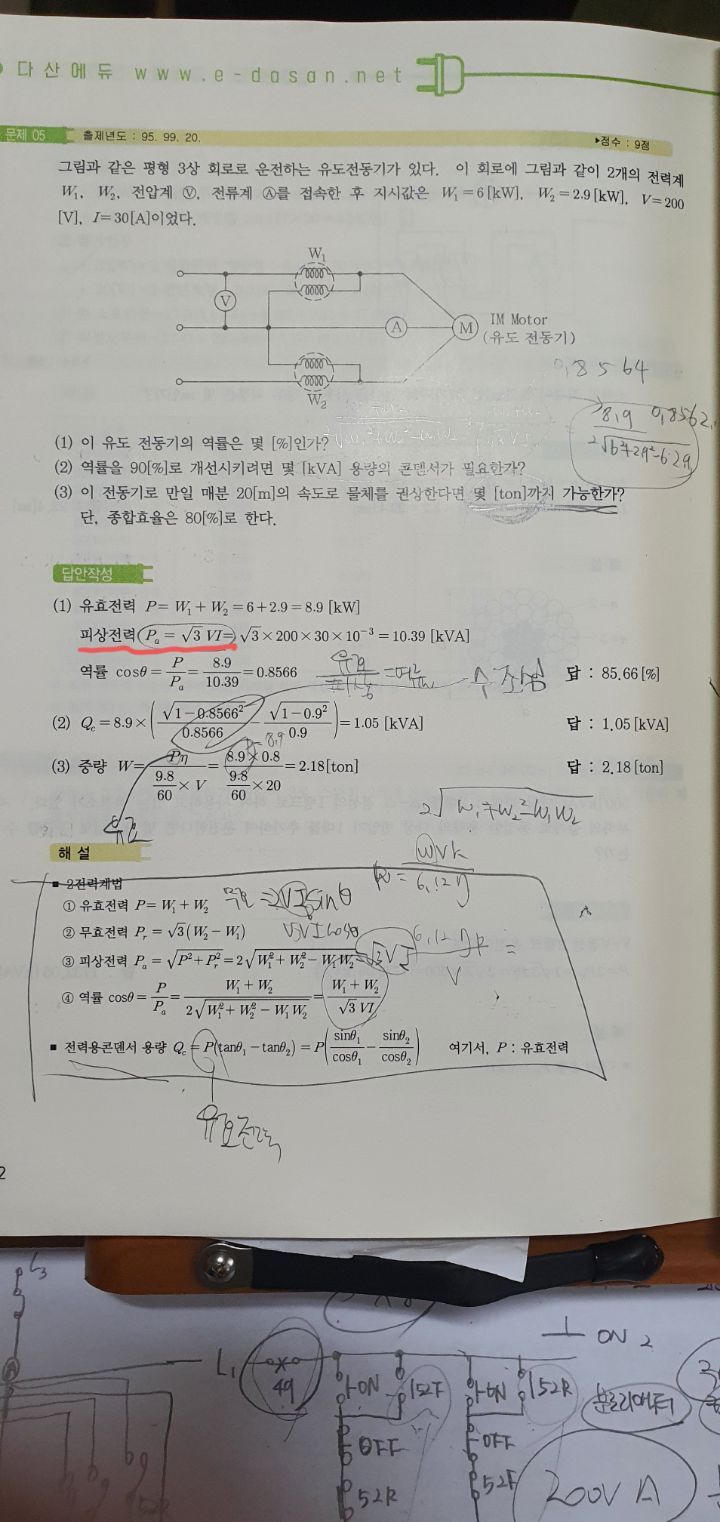 다산에듀 www.e-dasan.net
문제 05 출제년도 : 95. 99. 20. ▶점수 : 9점
그림과 같은 평형 3상 회로로 운전하는 유도전동기가 있다. 이 회로에 그림과 같이 2개의 전력계
W₁, W₂, 전압계 Ⓥ, 전류계 Ⓐ를 접속한 후 지시값은 W₁=6[kW], W₂=2.9[kW], V=200
[V], I=30[A]이었다.
W₁
V
A
M
IM Motor
(유도 전동기)
W₂
0,8564
8,9 0,8562
2√6²+2.9²-6·2.9
(1) 이 유도 전동기의 역률은 몇 [%]인가?
(2) 역률을 90[%]로 개선시키려면 몇 [kVA] 용량의 콘덴서가 필요한가?
(3) 이 전동기로 만일 매분 20[m]의 속도로 물체를 권상한다면 몇 [ton]까지 가능한가?
단, 종합효율은 80[%]로 한다.
답안작성
(1) 유효전력 P=W₁+W₂=6+2.9=8.9 [kW]
피상전력 Pₐ = √3 VI= √3×200×30×10⁻³=10.39 [kVA]
역률 cosθ = P/Pₐ = 8.9/10.39 = 0.8566 답 : 85.66 [%]
유효/피상
(2) Q_c = 8.9×(√1-0.8566²/0.8566 - √1-0.9²/0.9) = 1.05 [kVA] 답 : 1.05 [kVA]
P=8.9
(3) 중량 W = Pη/(9.8/60 × V) = 8.9×0.8/(9.8/60 × 20) = 2.18[ton] 답 : 2.18 [ton]
유효
2√W₁²+W₂²-W₁W₂
해 설
■ 2전력계법
① 유효전력 P=W₁+W₂
무효=2VI sinθ
√3VI cosθ
② 무효전력 P_r=√3(W₂-W₁)
③ 피상전력 Pₐ=√P²+P_r²=2√W₁²+W₂²-W₁W₂=√3VI
④ 역률 cosθ = P/Pₐ = W₁+W₂/2√W₁²+W₂²-W₁W₂ = W₁+W₂/√3 VI
WVk
6,12η
6,12ηP
V
■ 전력용콘덴서 용량 Q_c = P(tanθ₁-tanθ₂) = P(sinθ₁/cosθ₁ - sinθ₂/cosθ₂) 여기서, P : 유효전력
유효전력
2
L₃
L₁
49
ON
52F
ON
52R
OFF
OFF
52R
52F
ON 2
200V A